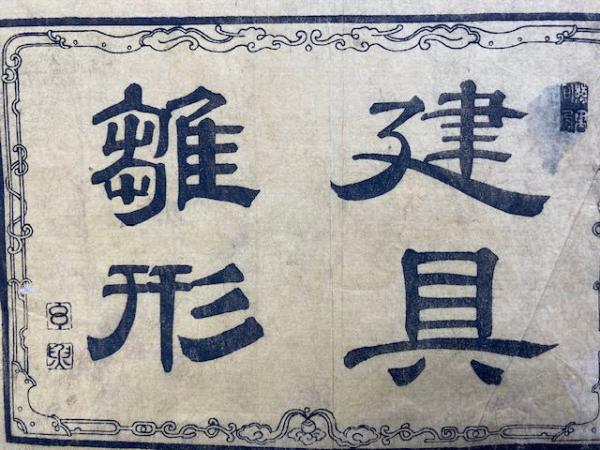 建具
雛形